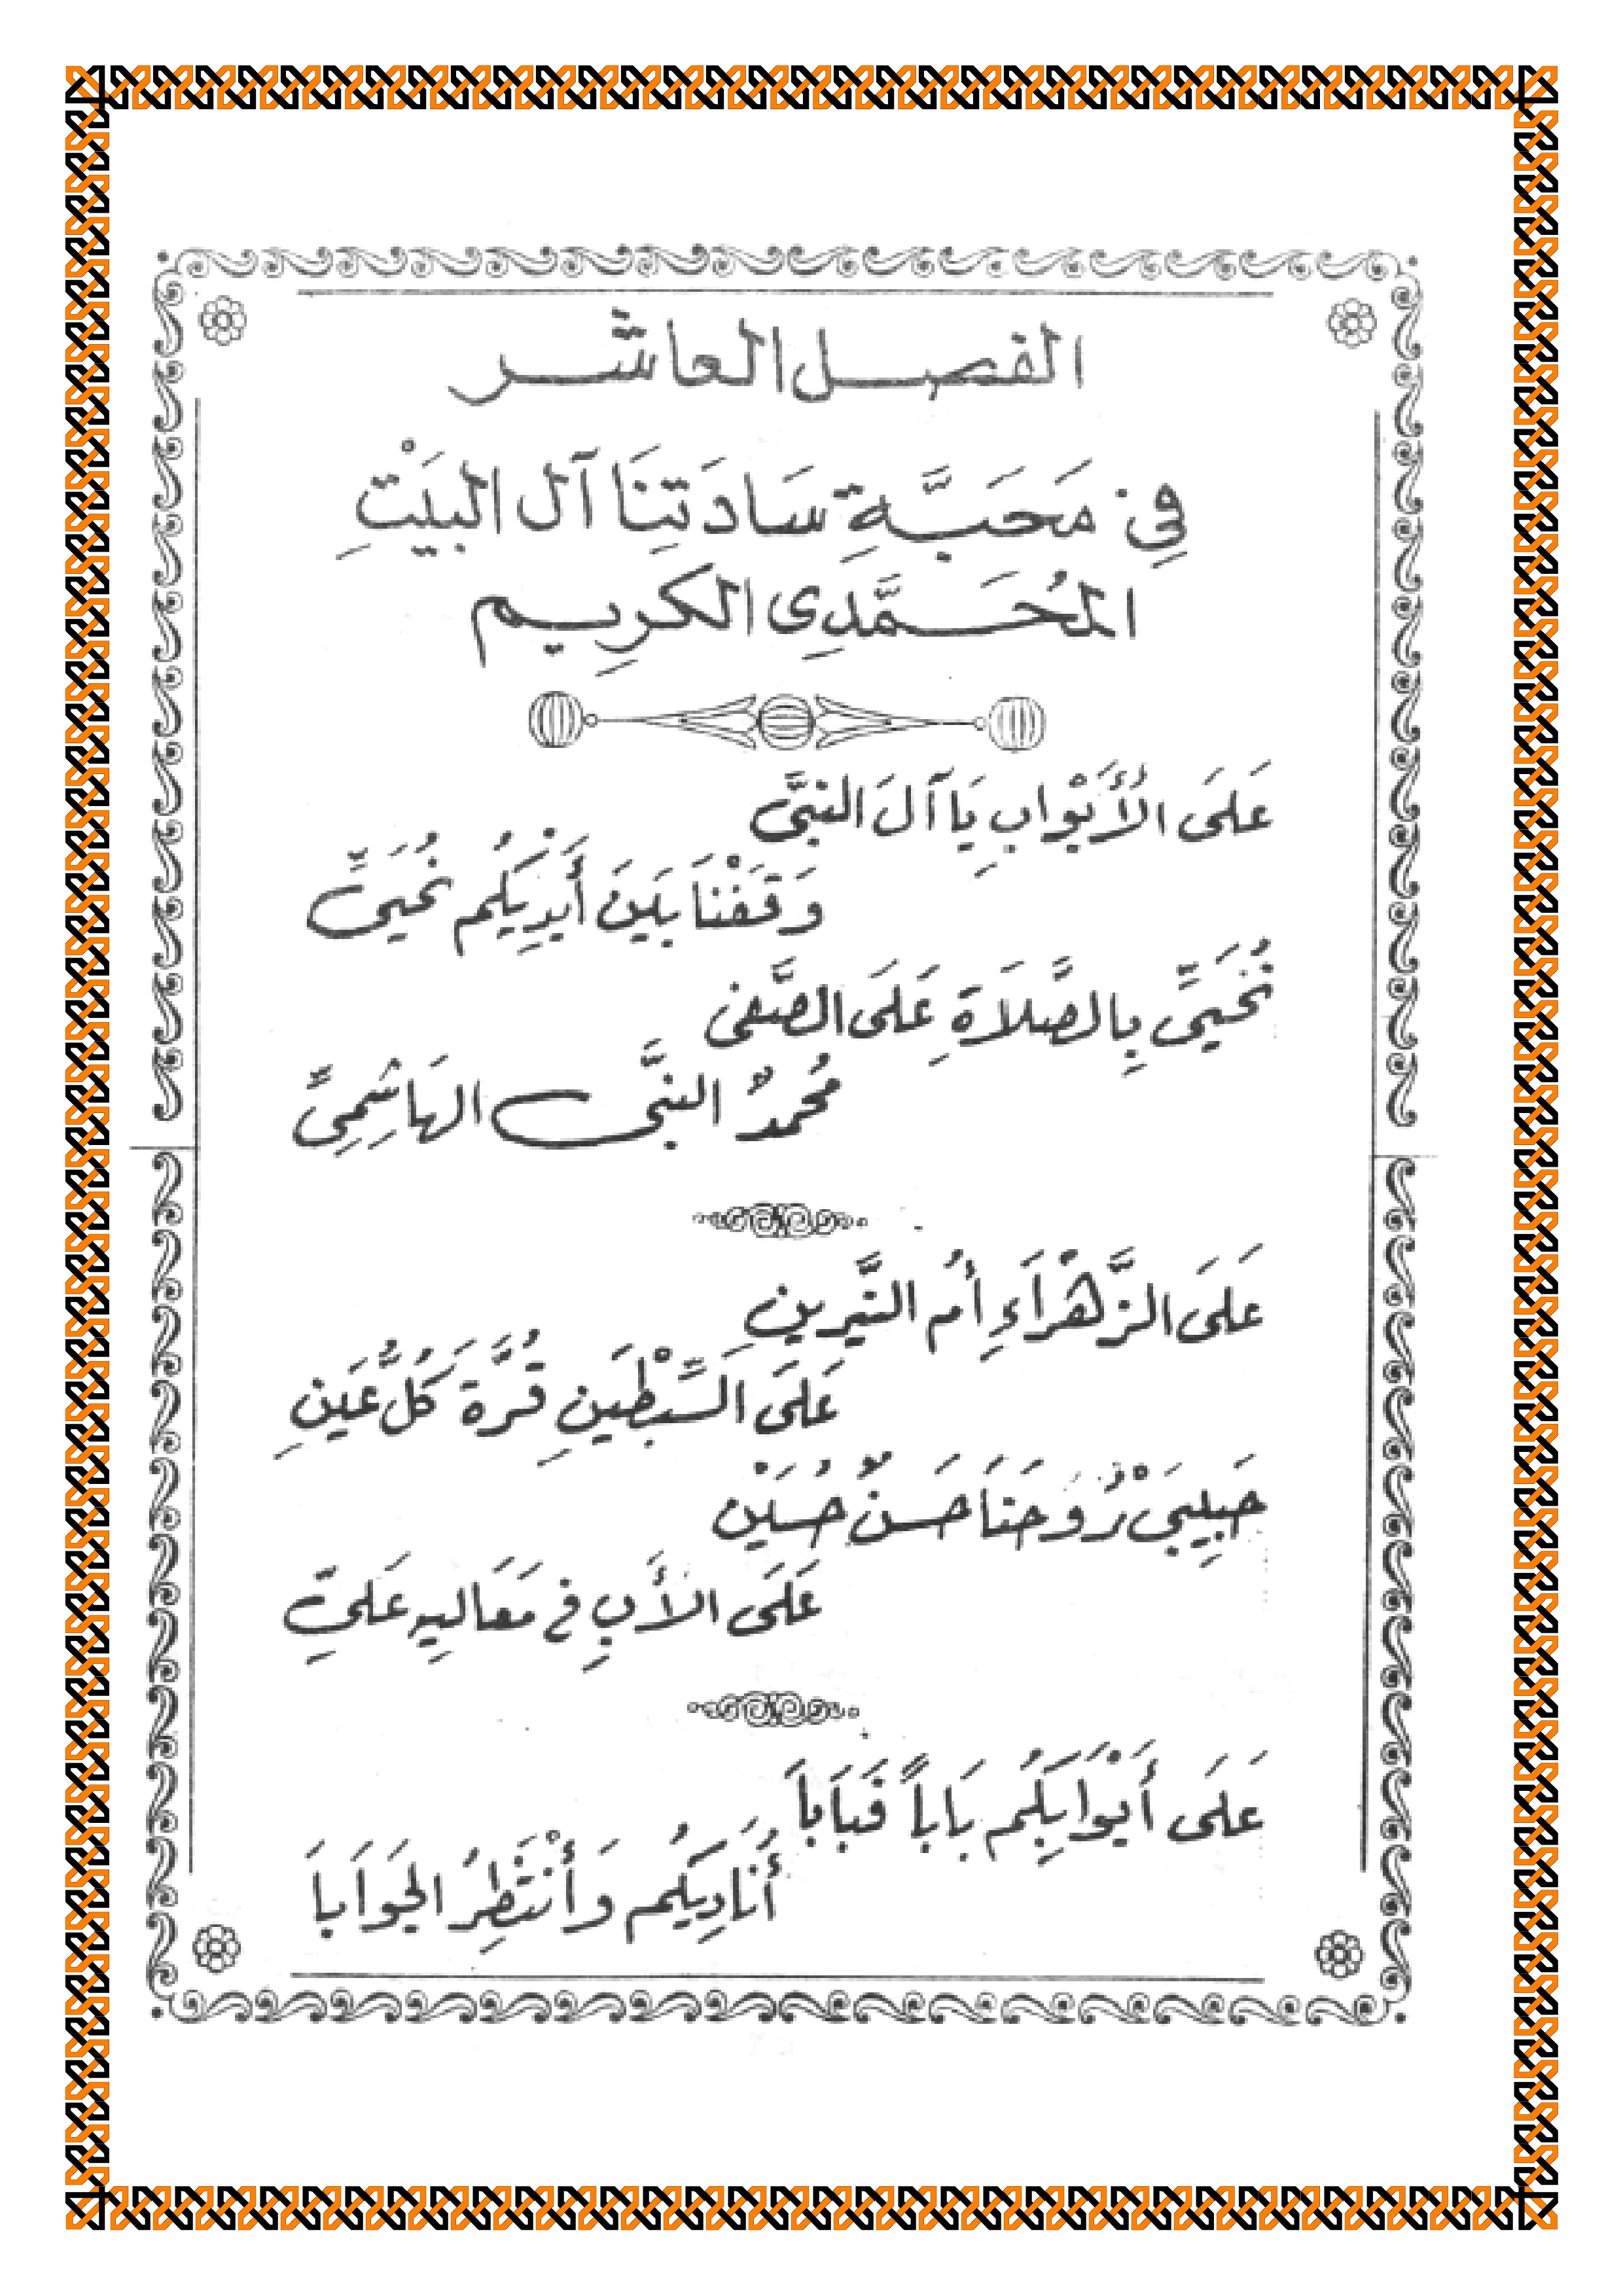 الفصل العاشر
فِي مَحَبَّةِ سَادَتِنَا آل البَيْتِ
المُحَمَّدِي الكَرِيم
عَلَى الأَبْوابِ يَا آلَ النبيَّ
وَقَفْنَا بَيْنَ أَيْدِيكُم نُحَيِّ
نُحَيِّ بِالصَّلاَةِ عَلَى الصَّفي
مُحمدٌ النبيَّ الهَاشِمِيِّ
عَلَى الزَّهْرَاءِ أُم النَّيرينِ
عَلَى السِّبْطَينِ قُرَّةَ كُلُّ عَينِ
حَبِيبَيْ رُوحَنَا حَسَنٌ حُسَيْن
عَلَى الأَبِ في مَعَالِيهِ عَلِيّ
عَلَى أَبْوَابِكُم بَاباً فَبَابَا
أُنَادِيكُم وَأَنْتَظِرُ الجَوَابَا